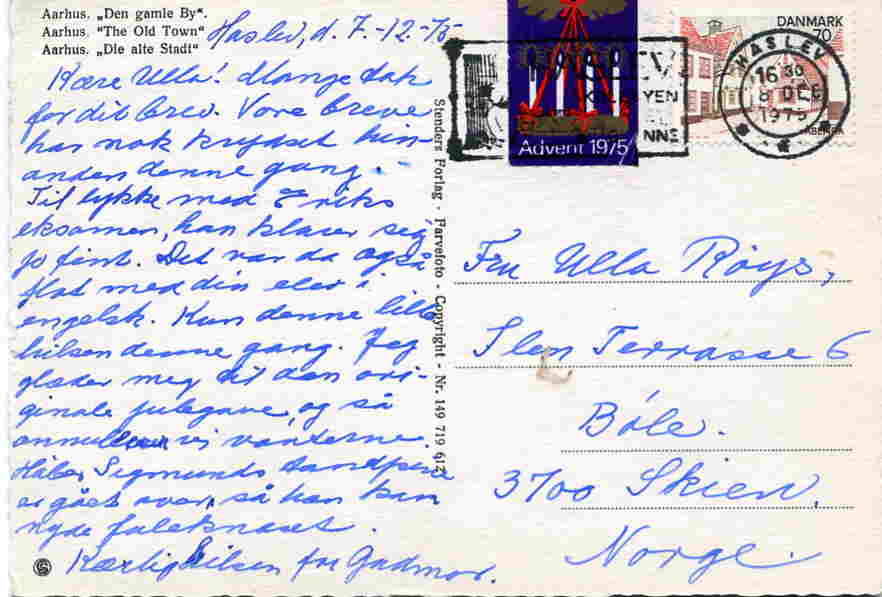 Aarhus. „Den gamle By".
Aarhus. "The Old Town"
Aarhus. „Die alte Stadt"
Haslev, d. 7.-12.-75
Kære Ulla! Mange tak
for dit brev. Vore breve
har nok krydset hin-
anden denne gang.
Til lykke med Eriks
eksamen, han klarer sig
jo fint. Det var da også
flot med din elev i
engelsk. Kun denne lille
hilsen denne gang. Jeg
glæder meg til den ori-
ginale julegave, og så
annullerer vi vanterne.
Håber Sigmunds tandpine
er gået over, så han kan
nyde juleknaset.
Kærlig hilsen fra Gudmor.
Stenders Forlag - Farvefoto - Copyright - Nr. 149 719 612
Advent 1975
DANMARK
70
HASLEV
16 30
8 DEC
1975
Fru Ulla Røys,
Slen Terrasse 6
Bøle.
3700 Skien,
Norge.